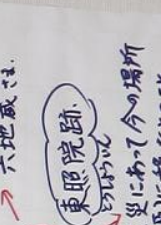 六地蔵さま.
東照院跡.
とうしょういん
災にあって今の場所